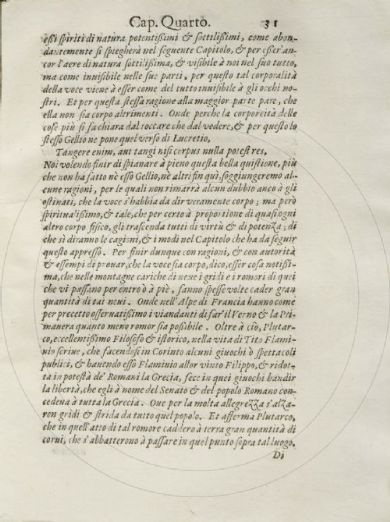 Cap. Quarto. 31
essi spiriti di natura potentissimi & sottilissimi, come abon-
dantemente si spiegherà nel seguente Capitolo, & per esser an-
cor l'aere di natura sottilissima, & visibile à noi nel suo tutto,
ma come inuisibile nelle sue parti, per questo tal corporalità
della voce viene à esser come del tutto inuisibile à gli occhi no-
stri. Et per questa stessa ragione alla maggior parte pare, che
ella non sia corpo altrimenti. Onde perche la corporeità delle
cose più si fa chiara dal toccare che dal vedere, & per questo lo
stesso Gellio ne pone quel verso di Lucretio,
Tangere enim, aut tangi nisi corpus nulla potest res,
Noi volendo finir di spianare à pieno questa bella quistione, più
che non ha fatto nè esso Gellio, nè altri fin quì, soggiungeremo al-
cune ragioni, per le quali non rimarrà alcun dubbio anco à gli
ostinati, che la voce s'habbia da dir veramente corpo; ma però
spiritualissimo, & tale, che per certo à proportione di quasi ogni
altro corpo fisico, gli trascenda tutti di virtù & di potenza; di
che si diranno le cagioni, & i modi nel Capitolo che ha da seguir
questo appresso. Per finir dunque con ragioni, & con autorità
& essempi di prouar, che la voce sia corpo, dico, esser cosa notissi-
ma, che nelle montagne cariche di neue i gridi e i romori di quei
che vi passano per entro ò à piè, fanno spesse volte cader gran
quantità di tai neui. Onde nell'Alpe di Francia hanno come
per precetto osseruatissimo i viandanti di far'il Verno & la Pri-
mauera quanto meno romor sia possibile. Oltre à ciò, Plutar-
co, eccellentissimo Filosofo & istorico, nella vita di Tito Flami-
nio scriue, che facendosi in Corinto alcuni giuochi ò spettacoli
publici, & hauendo esso Flaminio allor vinto Filippo, & ridot-
ta in potestà de' Romani la Grecia, fece in quei giuochi bandir
la libertà, che egli à nome del Senato & del popolo Romano con-
cedeua à tutta la Grecia. Oue per la molta allegrezza s'alza-
ron gridi & strida da tutto quel popolo. Et afferma Plutarco,
che in quell'atto di tal romore caddero à terra gran quantità di
corui, che s'abbatterono à passare in quel punto sopra tal luogo.
Di